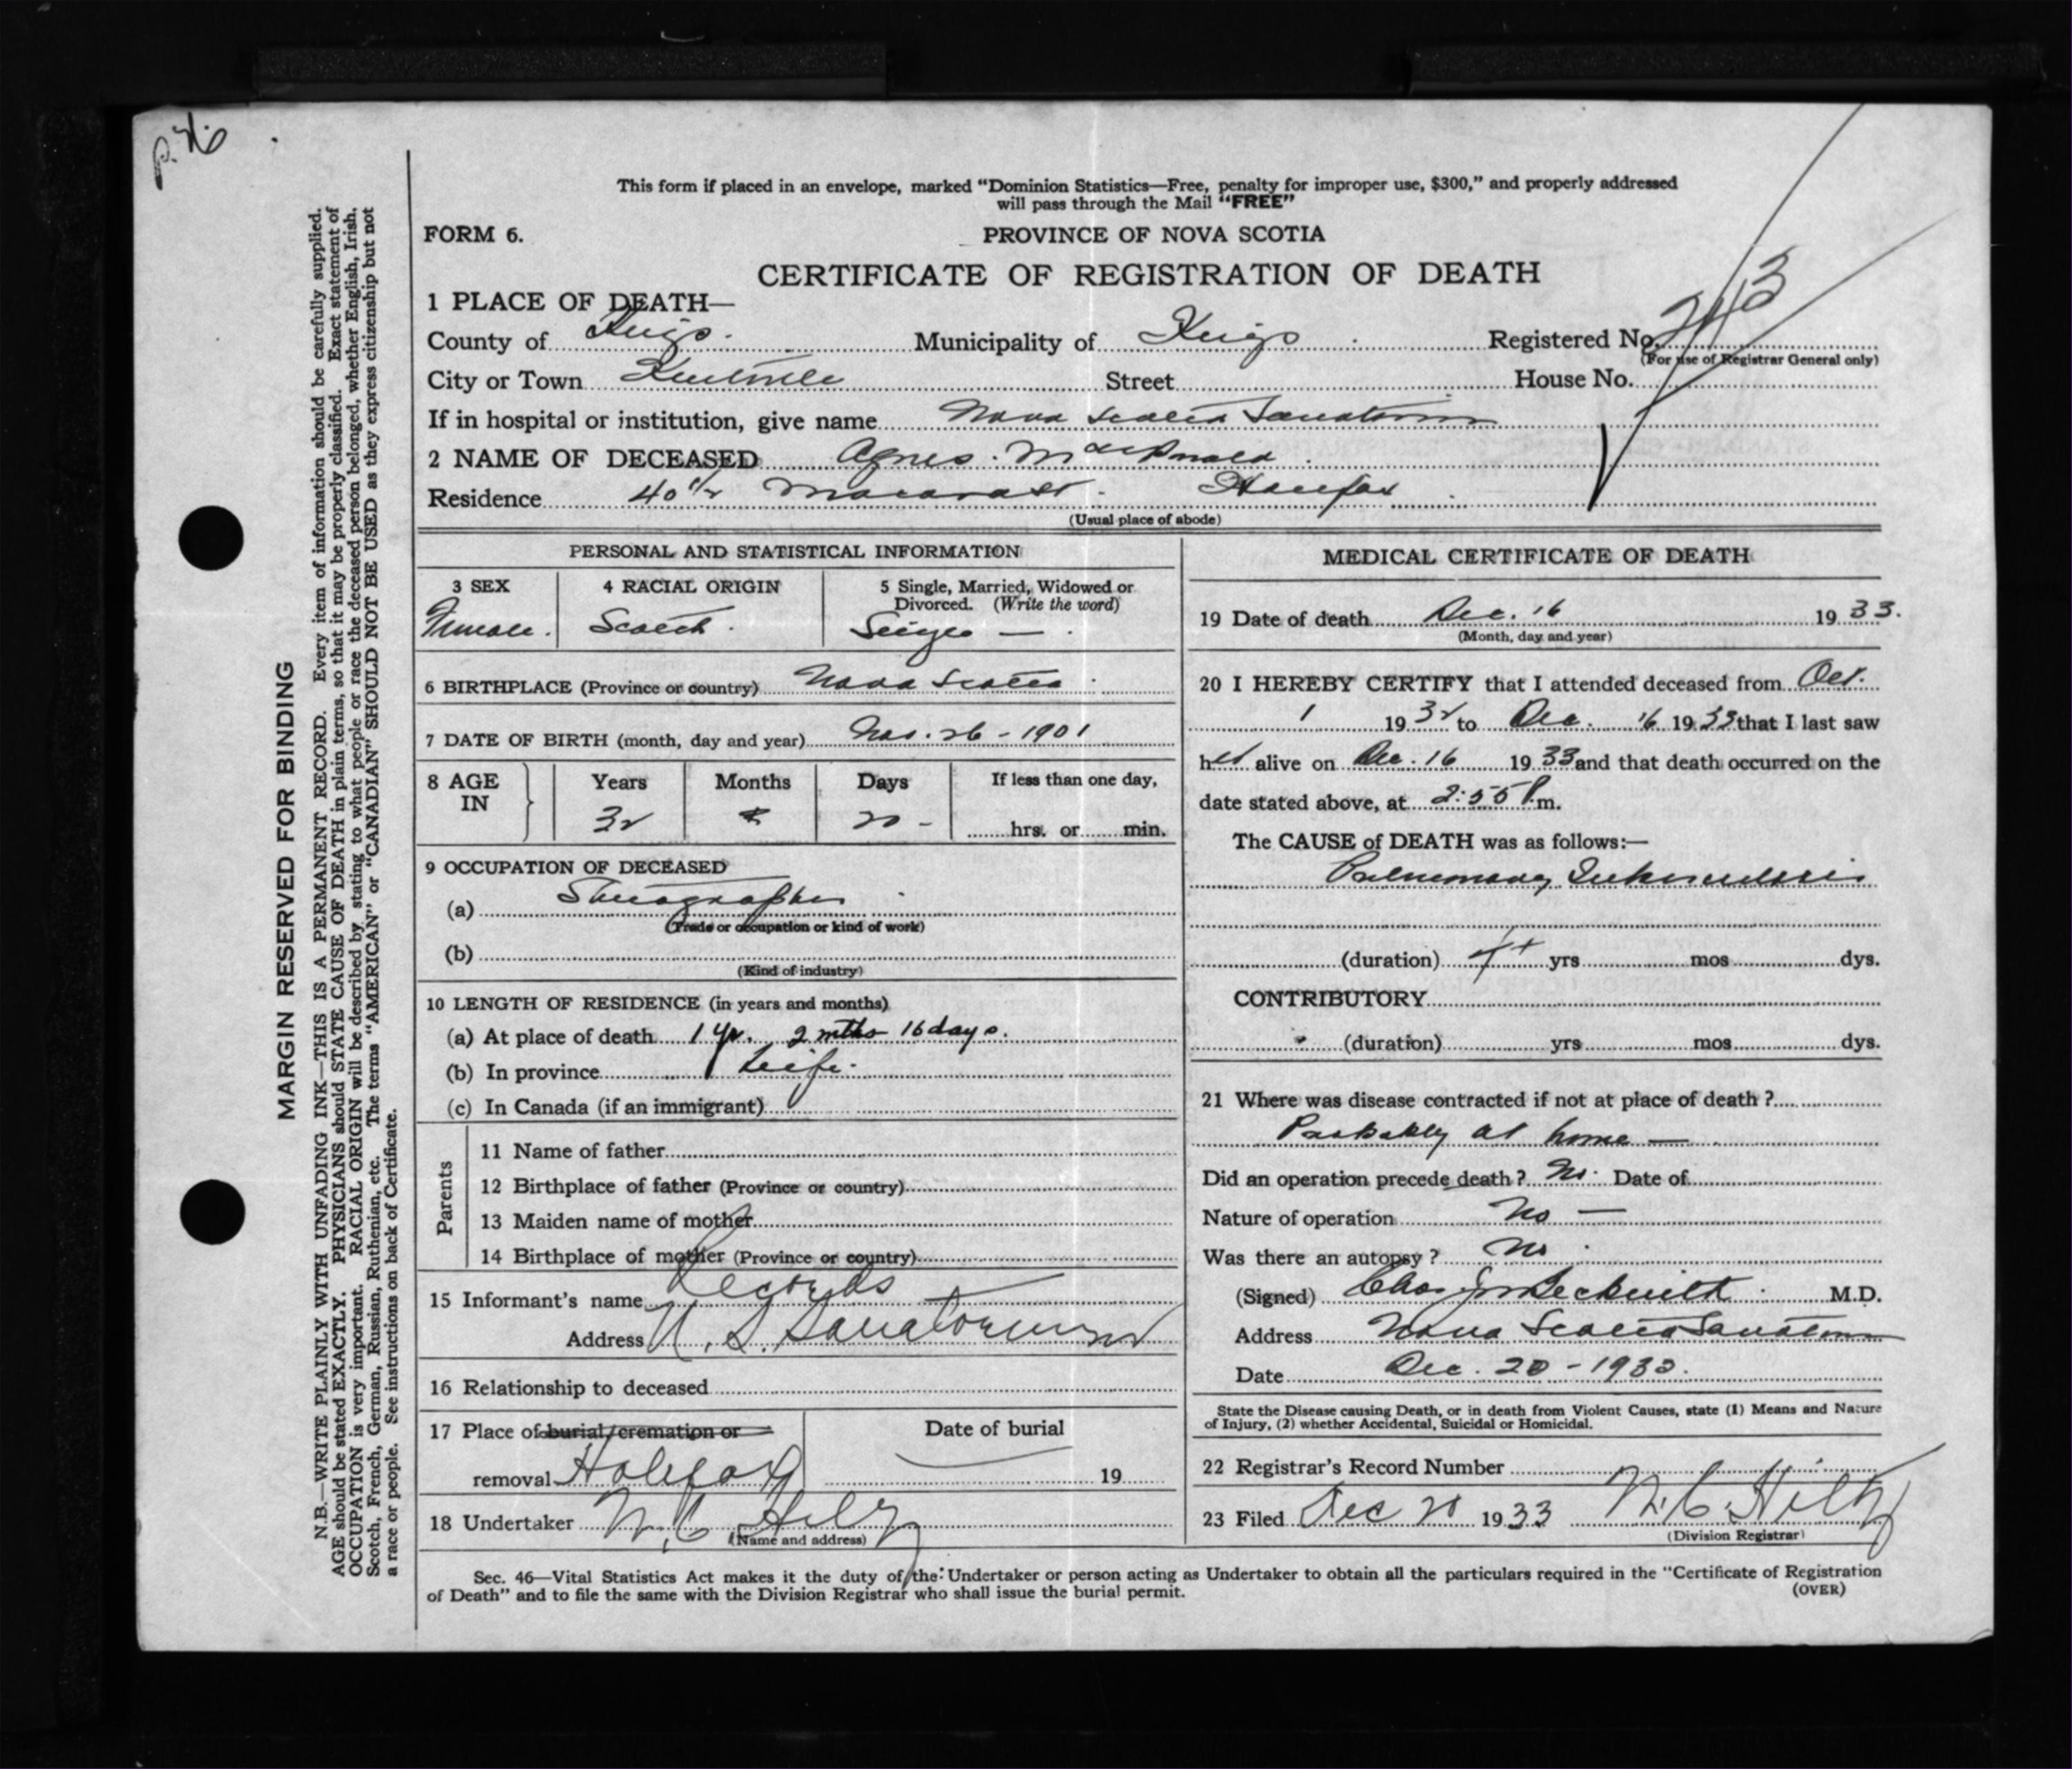 This form if placed in an envelope, marked “Dominion Statistics—Free, penalty for improper use, $300,” and properly addressed
will pass through the Mail “FREE”
FORM 6.
PROVINCE OF NOVA SCOTIA
CERTIFICATE OF REGISTRATION OF DEATH
1 PLACE OF DEATH—
County of Kings. Municipality of Kings Registered No. 243
(For use of Registrar General only)
City or Town Kentville Street House No.
If in hospital or institution, give name Nova Scotia Sanatorium
2 NAME OF DECEASED Agnes MacDonald
Residence 40 1/2 Halifax
(Usual place of abode)
PERSONAL AND STATISTICAL INFORMATION
3 SEX
Female.
4 RACIAL ORIGIN
Scotch.
5 Single, Married, Widowed or
Divorced. (Write the word)
Single —
6 BIRTHPLACE (Province or country) Nova Scotia
7 DATE OF BIRTH (month, day and year) Nov. 26 - 1901
8 AGE IN
Years Months Days If less than one day,
32 20 - hrs. or min.
9 OCCUPATION OF DECEASED
(a) Stenographer
(Trade or occupation or kind of work)
(b)
(Kind of industry)
10 LENGTH OF RESIDENCE (in years and months)
(a) At place of death 1 yr. 2 mths 16 days.
(b) In province Life.
(c) In Canada (if an immigrant)
Parents
11 Name of father
12 Birthplace of father (Province or country)
13 Maiden name of mother
14 Birthplace of mother (Province or country)
15 Informant's name Records
Address N. S. Sanatorium
16 Relationship to deceased
17 Place of burial, cremation or
removal Halifax
Date of burial
19
18 Undertaker N. C. Hiltz
(Name and address)
MEDICAL CERTIFICATE OF DEATH
19 Date of death Dec. 16 1933.
(Month, day and year)
20 I HEREBY CERTIFY that I attended deceased from Oct.
1 1932 to Dec. 16 1933 that I last saw
her alive on Dec. 16 1933 and that death occurred on the
date stated above, at 2:55 P.m.
The CAUSE of DEATH was as follows:—
Pulmonary Tuberculosis
(duration) 4+ yrs mos dys.
CONTRIBUTORY
(duration) yrs mos dys.
21 Where was disease contracted if not at place of death?
Probably at home —
Did an operation precede death? No. Date of
Nature of operation No —
Was there an autopsy? No.
(Signed) Chas J W Beckwith M.D.
Address Nova Scotia Sanatorium
Date Dec. 20 - 1933.
State the Disease causing Death, or in death from Violent Causes, state (1) Means and Nature
of Injury, (2) whether Accidental, Suicidal or Homicidal.
22 Registrar's Record Number
23 Filed Dec 20 1933 N. C. Hiltz
(Division Registrar)
Sec. 46—Vital Statistics Act makes it the duty of the Undertaker or person acting as Undertaker to obtain all the particulars required in the “Certificate of Registration
of Death” and to file the same with the Division Registrar who shall issue the burial permit.
(OVER)
MARGIN RESERVED FOR BINDING
N.B.—WRITE PLAINLY WITH UNFADING INK—THIS IS A PERMANENT RECORD. Every item of information should be carefully supplied.
AGE should be stated EXACTLY. PHYSICIANS should STATE CAUSE OF DEATH in plain terms, so that it may be properly classified. Exact statement of
OCCUPATION is very important. RACIAL ORIGIN will be described by stating to what people or race the deceased person belonged, whether English, Irish,
Scotch, French, German, Russian, Ruthenian, etc. The terms “AMERICAN” or “CANADIAN” SHOULD NOT BE USED as they express citizenship but not
a race or people. See instructions on back of Certificate.